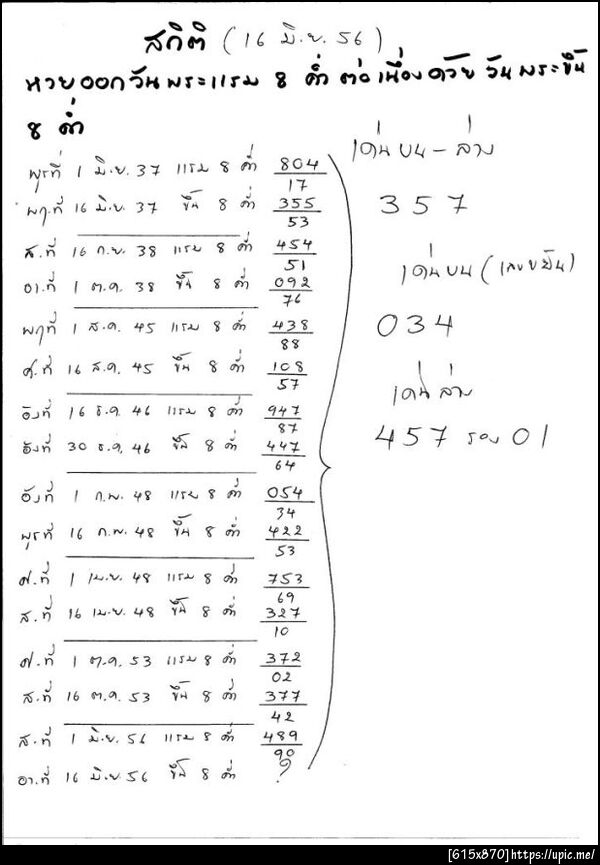 สถิติ (16 มิ.ย. 56)
หวยออกวันพระแรม 8 ค่ำ ต่อเนื่องด้วย วันพระขึ้น
8 ค่ำ
พุธที่ 1 มิ.ย. 37 แรม 8 ค่ำ 804
17
พฤ.ที่ 16 มิ.ย. 37 ขึ้น 8 ค่ำ 355
53
ส.ที่ 16 ก.ย. 38 แรม 8 ค่ำ 454
51
อา.ที่ 1 ต.ค. 38 ขึ้น 8 ค่ำ 092
76
พฤที่ 1 ส.ค. 45 แรม 8 ค่ำ 438
88
ศ.ที่ 16 ส.ค. 45 ขึ้น 8 ค่ำ 108
57
อังที่ 16 ธ.ค. 46 แรม 8 ค่ำ 947
87
อังที่ 30 ธ.ค. 46 ขึ้น 8 ค่ำ 447
64
อังที่ 1 ก.พ. 48 แรม 8 ค่ำ 054
34
พุธที่ 16 ก.พ. 48 ขึ้น 8 ค่ำ 422
53
ศ.ที่ 1 เม.ย. 48 แรม 8 ค่ำ 753
69
ส.ที่ 16 เม.ย. 48 ขึ้น 8 ค่ำ 327
10
ศ.ที่ 1 ต.ค. 53 แรม 8 ค่ำ 372
02
ส.ที่ 16 ต.ค. 53 ขึ้น 8 ค่ำ 377
42
ส.ที่ 1 มิ.ย. 56 แรม 8 ค่ำ 489
90
อา.ที่ 16 มิ.ย. 56 ขึ้น 8 ค่ำ ?
เด่น บน - ล่าง
357
เด่นบน (เลขขยัน)
034
เด่นล่าง
457 รอง 01
[615x870]https://upic.me/